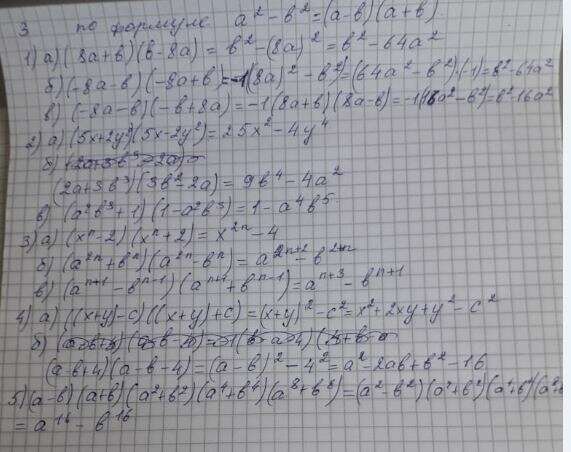 3 по формуле a² - b² = (a-b)(a+b)
1) а) (8a+b)(b-8a) = b² - (8a)² = b² - 64a²
б) (-8a-b)(-8a+b) = -1((8a)² - b²) = (64a² - b²)·(-1) = b² - 64a²
в) (-8a-b)(-b+8a) = -1(8a+b)(8a-b) = -1(16a² - b²) = b² - 16a²
2) а) (5x+2y²)(5x-2y²) = 25x² - 4y⁴
б)
(2a+3b³)(3b²-2a) = 9b⁴ - 4a²
в) (a²b³+1)(1-a²b³) = 1 - a⁴b⁵
3) а) (xⁿ-2)(xⁿ+2) = x²ⁿ - 4
б) (a²ⁿ+bⁿ)(a²ⁿ-bⁿ) = a²ⁿ⁺² - b²⁺ⁿ
в) (aⁿ⁺¹ - bⁿ⁻¹)(aⁿ⁺¹ + bⁿ⁻¹) = aⁿ⁺³ - bⁿ⁺¹
4) а) ((x+y)-c)((x+y)+c) = (x+y)² - c² = x² + 2xy + y² - c²
б)
(a-b+4)(a-b-4) = (a-b)² - 4² = a² - 2ab + b² - 16
5) (a-b)(a+b)(a²+b²)(a⁴+b⁴)(a⁸+b⁸) = (a²-b²)(a²+b²)(a⁴+b⁴)(a⁸+
= a¹⁶ - b¹⁶